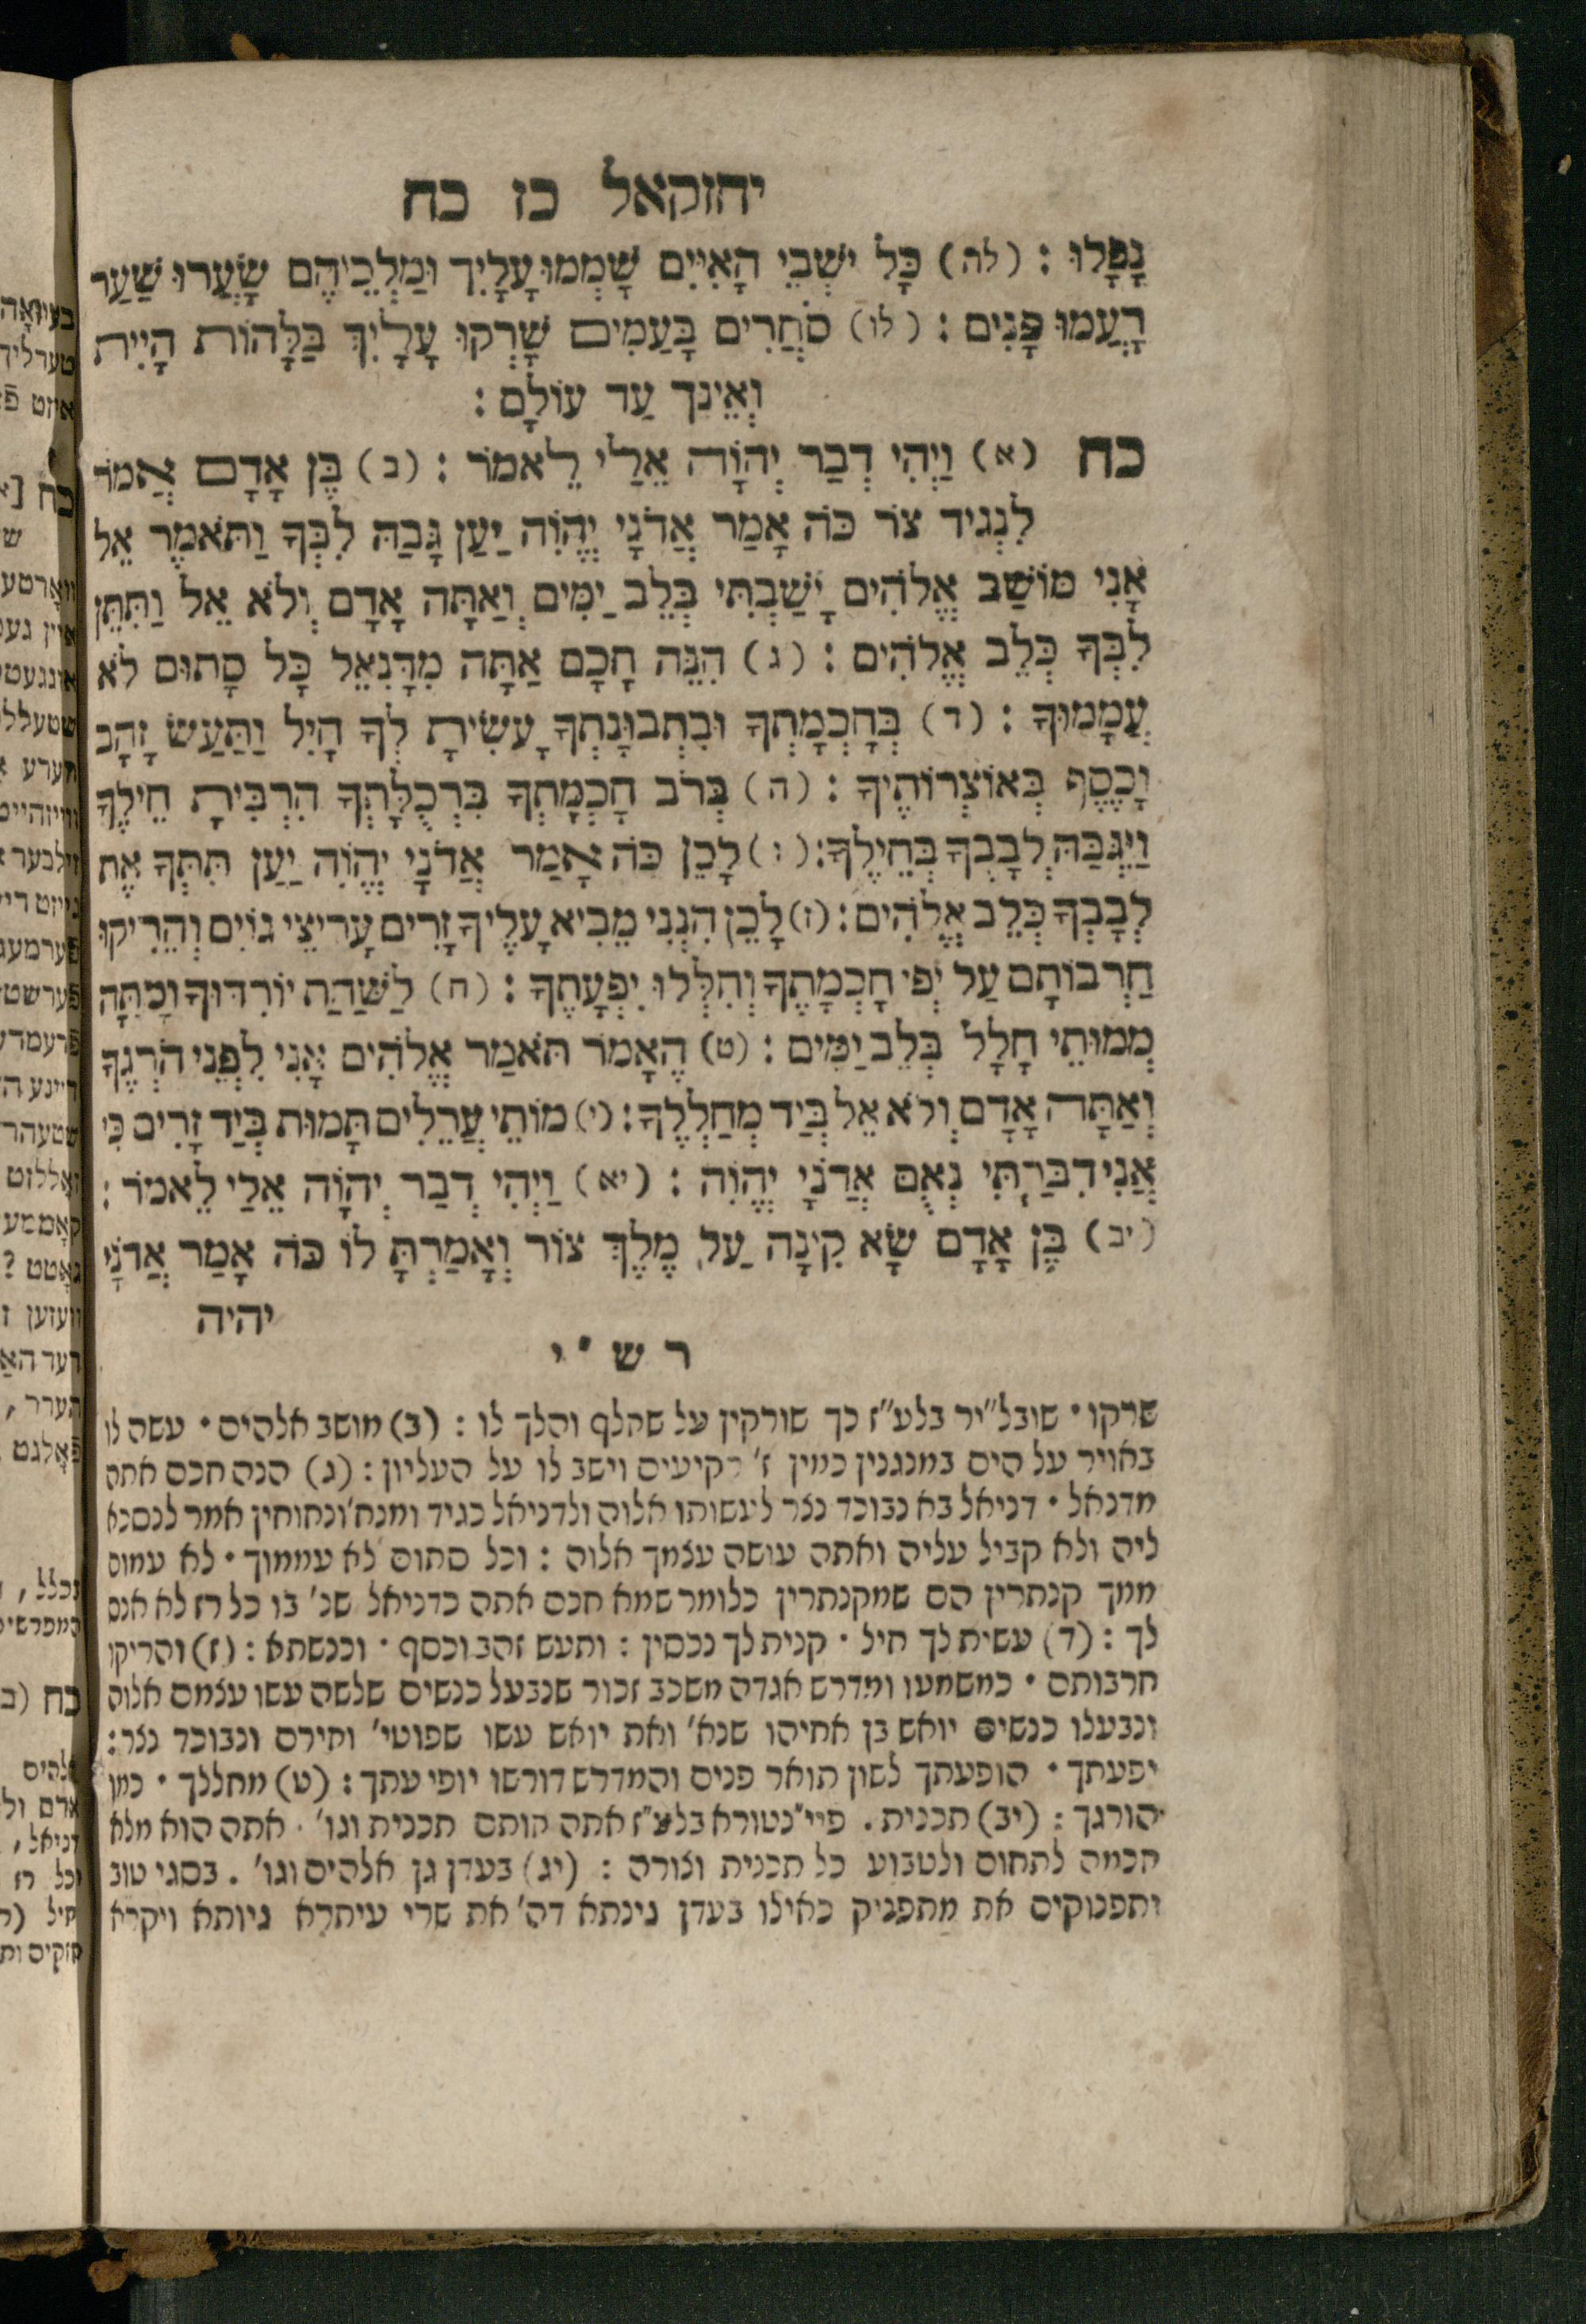 יחזקאל כז כח
נָפָלוּ : (לה) כָּל יֹשְׁבֵי הָאִיִּים שָׁמְמוּ עָלָיִךְ וּמַלְכֵיהֶם שָׂעֲרוּ שַׂעַר
רָעֲמוּ פָּנִים : (לו) סֹחֲרִים בָּעַמִּים שָׁרְקוּ עָלָיִךְ בַּלָּהוֹת הָיִית
וְאֵינֵךְ עַד עוֹלָם :
כח (א) וַיְהִי דְבַר יְהוָֹה אֵלַי לֵאמֹר : (ב) בֶּן אָדָם אֱמֹר
לִנְגִיד צֹר כֹּה אָמַר אֲדֹנָי יֱהוִֹה יַעַן גָּבַהּ לִבְּךָ וַתֹּאמֶר אֵל
אָנִי מוֹשַׁב אֱלֹהִים יָשַׁבְתִּי בְּלֵב יַמִּים וְאַתָּה אָדָם וְלֹא אֵל וַתִּתֵּן
לִבְּךָ כְּלֵב אֱלֹהִים : (ג) הִנֵּה חָכָם אַתָּה מִדָּנִאֵל כָּל סָתוּם לֹא
עֲמָמוּךָ : (ד) בְּחָכְמָתְךָ וּבִתְבוּנָתְךָ עָשִׂיתָ לְּךָ חָיִל וַתַּעַשׂ זָהָב
וָכֶסֶף בְּאוֹצְרוֹתֶיךָ : (ה) בְּרֹב חָכְמָתְךָ בִּרְכֻלָּתְךָ הִרְבִּיתָ חֵילֶךָ
וַיִּגְבַּהּ לְבָבְךָ בְּחֵילֶךָ: (ו) לָכֵן כֹּה אָמַר אֲדֹנָי יֱהוִֹה יַעַן תִּתְּךָ אֶת
לְבָבְךָ כְּלֵב אֱלֹהִים: (ז) לָכֵן הִנְנִי מֵבִיא עָלֶיךָ זָרִים עָרִיצֵי גוֹיִם וְהֵרִיקוּ
חַרְבוֹתָם עַל יְפִי חָכְמָתֶךָ וְחִלְּלוּ יִפְעָתֶךָ : (ח) לַשַּׁחַת יוֹרִדוּךָ וָמַתָּה
מְמוֹתֵי חָלָל בְּלֵב יַמִּים : (ט) הֶאָמֹר תֹּאמַר אֱלֹהִים אָנִי לִפְנֵי הֹרְגֶךָ
וְאַתָּה אָדָם וְלֹא אֵל בְּיַד מְחַלְלֶיךָ: (י) מוֹתֵי עֲרֵלִים תָּמוּת בְּיַד זָרִים כִּי
אֲנִי דִבַּרְתִּי נְאֻם אֲדֹנָי יֱהוִֹה : (יא) וַיְהִי דְבַר יְהוָֹה אֵלַי לֵאמֹר :
(יב) בֶּן אָדָם שָׂא קִינָה עַל מֶלֶךְ צוֹר וְאָמַרְתָּ לּוֹ כֹּה אָמַר אֲדֹנָי
יהיה
רש"י
שרקו· שובל״יר בלע״ז כך שורקין על שחלף והלך לו : (ב) מושב אלהים· עשה לו
באויר על הים במנגנין כמין ז׳ רקיעים וישב לו על העליון : (ג) הנה חכם אתה
מדנאל· דניאל בא נבוכד נצר לעשותו אלוה ולדניאל כגיד ומנח׳ ונחוחין אמר לנסכא
ליה ולא קביל עליה ואתה עושה עצמך אלוה : וכל סתום לא עממוך· לא עמום
ממך קנתרין הם שמקנתרין כלומר שמא חכם אתה כדניאל שנ׳ בו כל רז לא אנס
לך : (ד) עשית לך חיל· קנית לך נכסין : ותעש זהב וכסף· וכנשתא : (ז) והריקו
חרבותם· כמשמעו ומדרש אגדה משכב זכור שנבעל כנשים שלשה עשו עצמם אלוה
ונבעלו כנשים יואש בן אחיהו שנא׳ ואת יואש עשו שפוטי׳ וחירם ונבוכד נצר :
יפעתך· הופעתך לשון תואר פנים והמדרש דורשו יופי עתך : (ט) מחללך· כמו
הורגך : (יב) תכנית. פיי״נטורא בלע״ז אתה חותם תכנית וגו׳· אתה הוא מלא
חכמה לחתום ולטבוע כל תכנית וצורה : (יג) בעדן גן אלהים וגו׳. בסגי טוב
ותפנוקים את מתפניק כאילו בעדן גינתא דה׳ את שרי עיתרא גיותא ויקרא